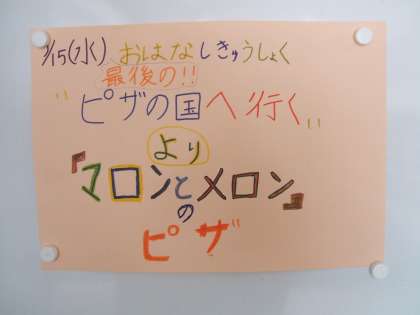 3/15(水) おはなしきゅうしょく
最後の!!
"ピザの国へ行く"
より
『マロンとメロン』
の
ピザ